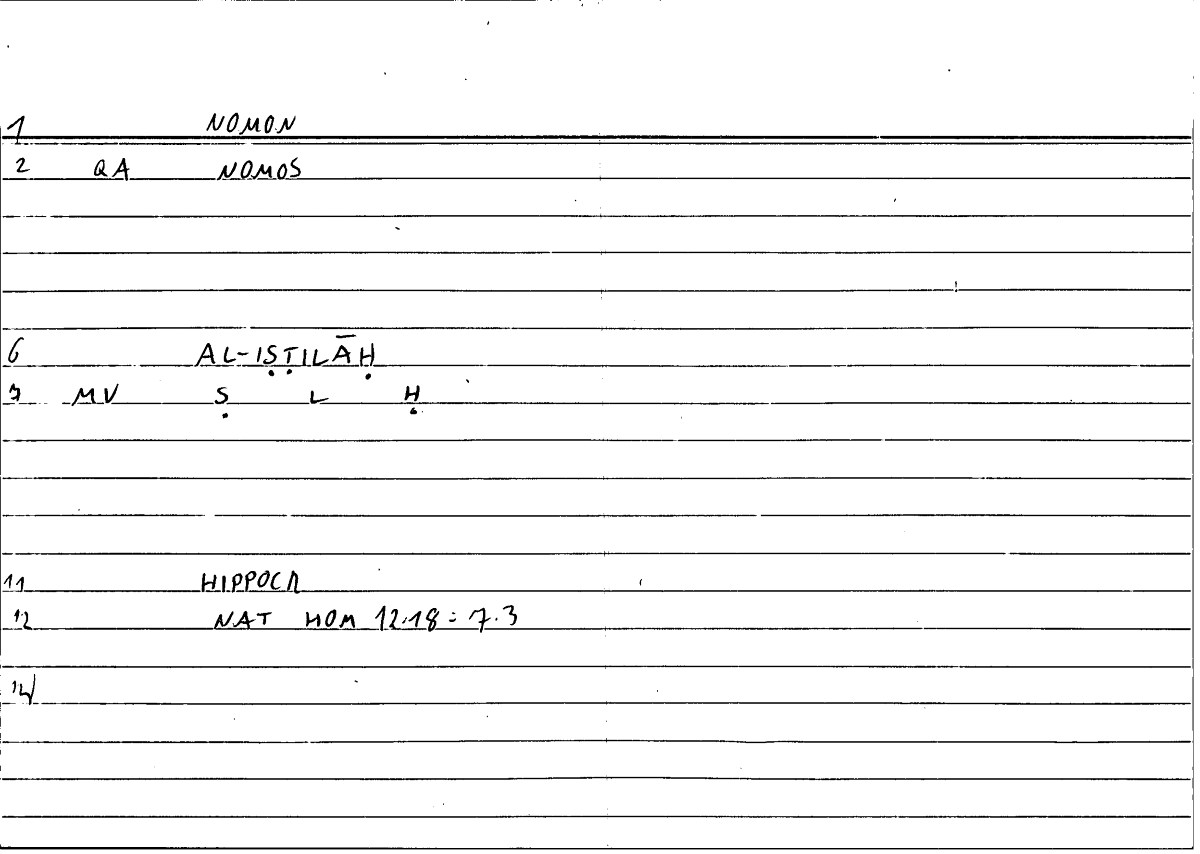 1 NOMON
2 QA NOMOS
6 AL-IṢṬILĀḤ
7 MV Ṣ L Ḥ
11 HIPPOCR
12 NAT HOM 12.18 = 7.3
14